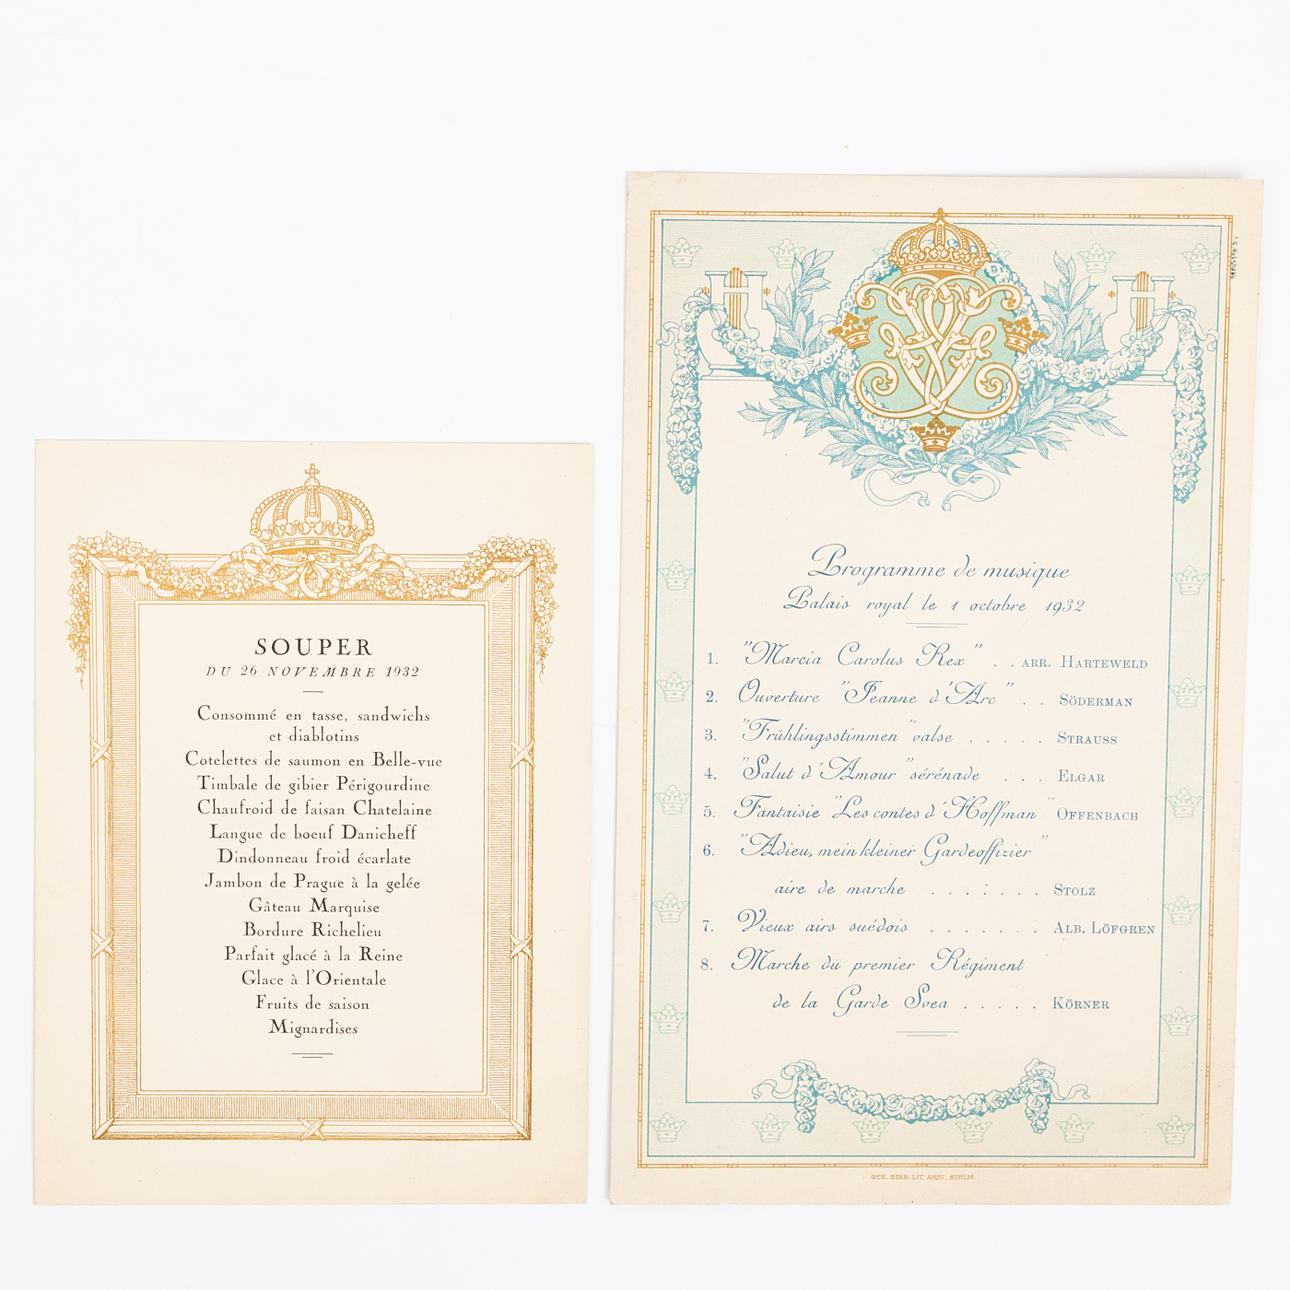 SOUPER
DU 26 NOVEMBRE 1932
Consommé en tasse, sandwichs
et diablotins
Cotelettes de saumon en Belle-vue
Timbale de gibier Périgourdine
Chaufroid de faisan Chatelaine
Langue de boeuf Danicheff
Dindonneau froid écarlate
Jambon de Prague à la gelée
Gâteau Marquise
Bordure Richelieu
Parfait glacé à la Reine
Glace à l'Orientale
Fruits de saison
Mignardises
Programme de musique
Palais royal le 1 octobre 1932
1. "Marcia Carolus Rex" . . ARR. HARTEWELD
2. Ouverture "Jeanne d'Arc" . . SÖDERMAN
3. "Frühlingsstimmen" valse . . . . . STRAUSS
4. "Salut d'Amour" sérénade . . . ELGAR
5. Fantaisie "Les contes d'Hoffman" OFFENBACH
6. "Adieu, mein kleiner Gardeoffizier"
aire de marche . . . . . . . STOLZ
7. Vieux airs suédois . . . . . . . ALB. LÖFGREN
8. Marche du premier Régiment
de la Garde Svea . . . . . KÖRNER
GEN. STAB. LIT. ANST. STHLM.